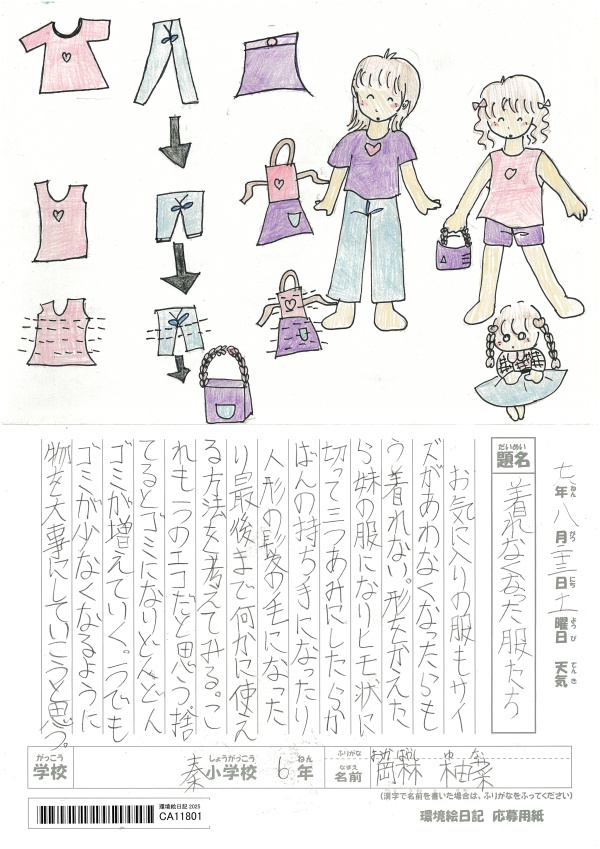 七年八月二十三日土曜日 天気
ねん がつ にち ようび てんき
だいめい
題名 着れなくなった服たち
お気に入りの服もサイ
ズがあわなくなったらも
う着れない。形をかえた
ら妹の服になりヒモ状に
切って三つあみにしたらか
ばんの持ち手になったり
人形の髪の毛になった
り最後まで何かに使え
る方法を考えてみる。こ
れも一つのエコだと思う。捨
てるとゴミになりどんどん
ゴミが増えていく。一つでも
ゴミが少なくなるように
物を大事にしていこうと思う。
がっこう しょうがっこう ねん
学校 秦小学校 6年
ふりがな おかばやし ゆな
なまえ
名前 岡林 柚菜
(漢字で名前を書いた場合は、ふりがなをふってください)
環境絵日記 2025
CA11801
環境絵日記 応募用紙